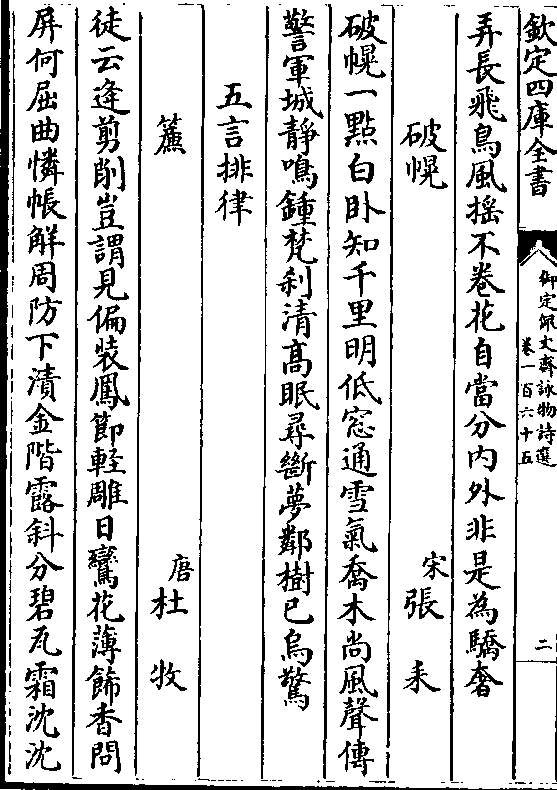 欽定四庫全書
御定佩文齋詠物詩選
卷一百六十五
二
弄長飛鳥風搖不卷花自當分內外非是為驕奢
破幌
宋張耒
破幌一點白卧知千里明低窓通雪氣喬木尚風聲傳
警軍城靜鳴鐘梵刹清高眠尋斷夢鄰樹已烏驚
五言排律
簾
唐杜牧
徒云逢剪削豈謂見偏裝鳳節輕雕日鸞花薄飾香問
屏何屈曲憐帳解周防下漬金階露斜分碧瓦霜沈沈